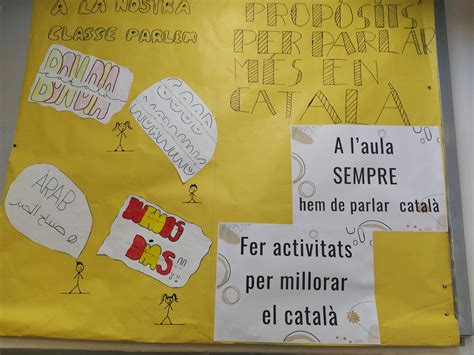 A LA NOSTRA
CLASSE PARLEM
PROPÒSITS
PER PARLAR
MÉS EN
CATALÀ
ÀRAB
صباح الخير
DÍAS
A l'aula
SEMPRE
hem de parlar català
Fer activitats
per millorar
el català